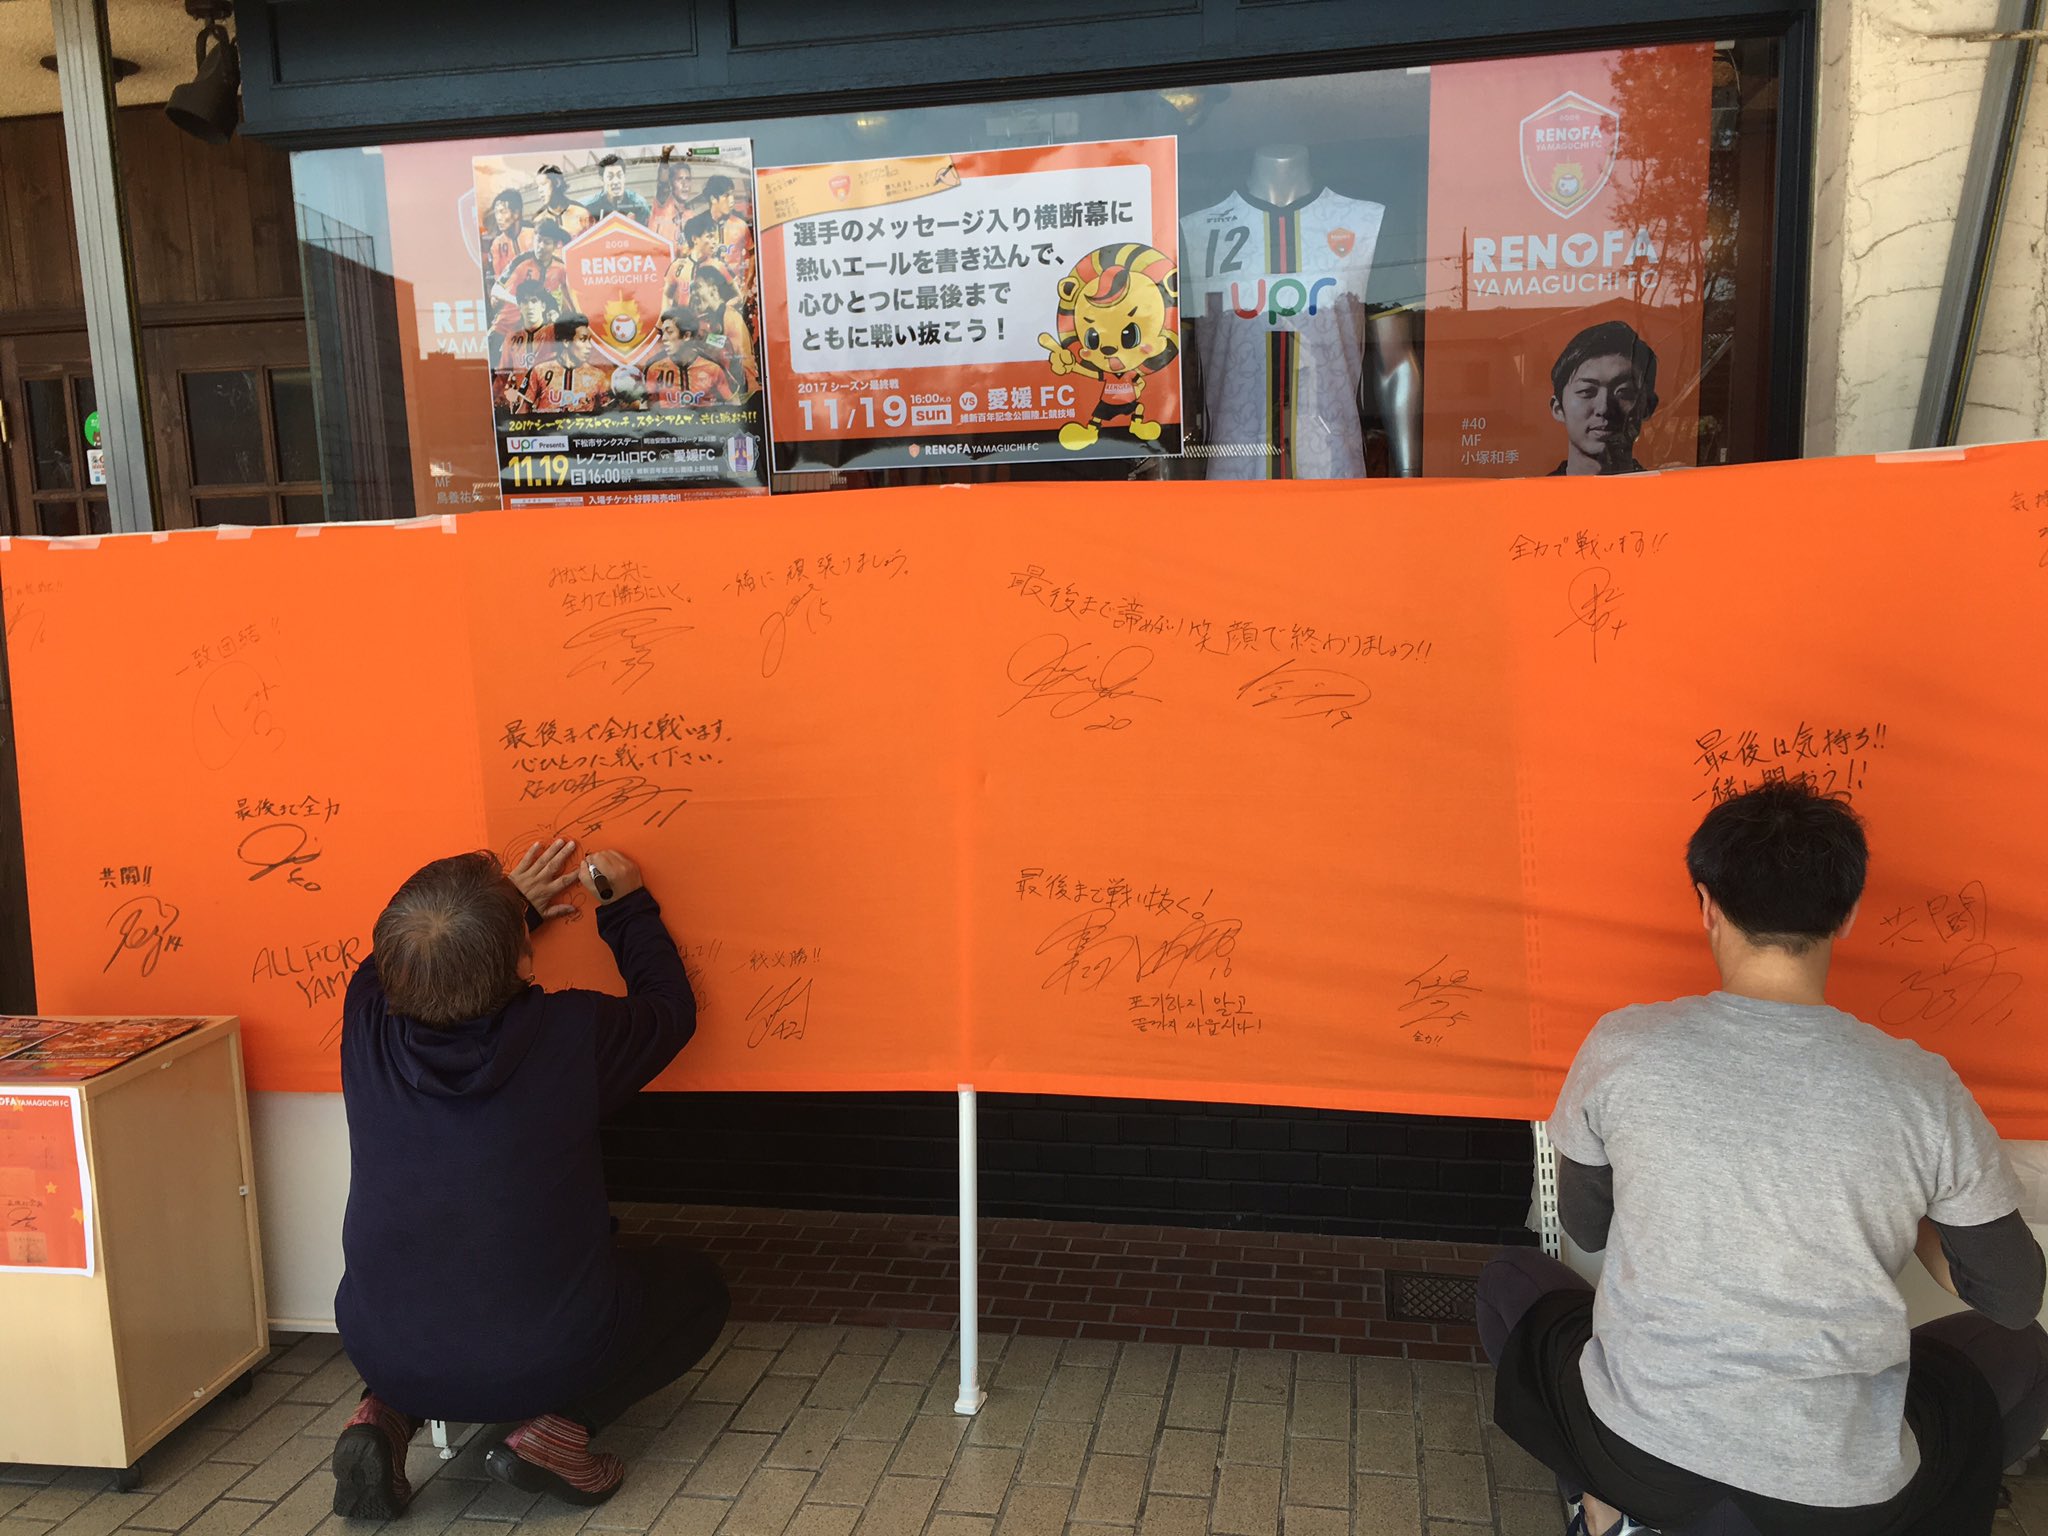 2006
RENOFA
YAMAGUCHI FC
2017シーズンラストマッチ、スタジアムで、共に戦おう!!
upr Presents 下松市サンクスデー 明治安田生命J2リーグ第42節
11.19 日 16:00 レノファ山口FC vs 愛媛FC
維新百年記念公園陸上競技場
入場チケット好評発売中!!
選手のメッセージ入り横断幕に
熱いエールを書き込んで、
心ひとつに最後まで
ともに戦い抜こう！
2017シーズン最終戦
11/19 16:00K.O sun vs 愛媛FC
維新百年記念公園陸上競技場
RENOFA YAMAGUCHI FC
12
upr
2006
RENOFA
YAMAGUCHI FC
RENOFA
YAMAGUCHI FC
#40
MF
小塚和季
MF
鳥養祐矢
一致団結!!
みなさんと共に
全力で勝ちにいく。
一緒に頑張りましょう。
15
最後まで諦めない
笑顔で終わりましょう!!
20
19
全力で戦います!!
最後まで全力で戦います。
心ひとつに戦って下さい。
RENOFA
11
最後は気持ち!!
一緒に闘おう!!
最後まで全力
共闘!!
14
ALL FOR
YAM
一戦必勝!!
42
最後まで戦い抜く!
16
포기하지 말고
끝까지 싸웁시다!
25
全力!!
共闘
YAMAGUCHI FC